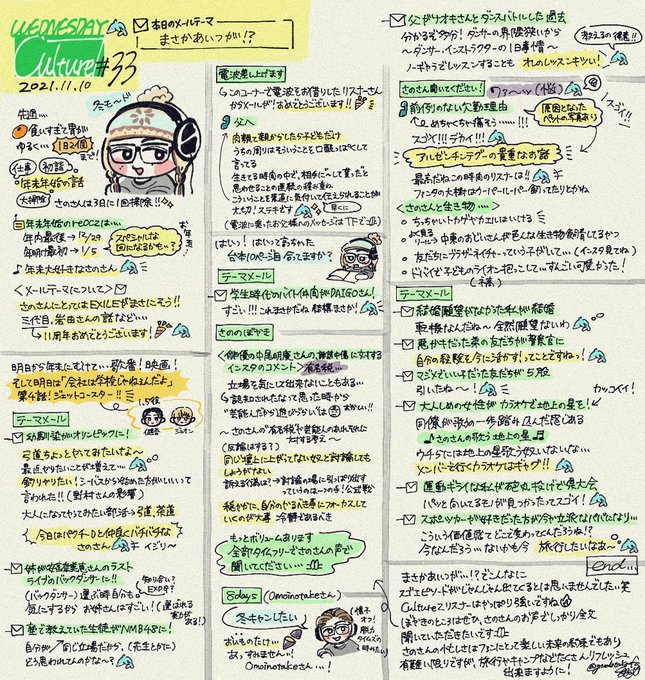 WEDNESDAY
Culture #33
2021.11.10
本日のメールテーマ
まさかあいつが!?
冬モード
先週…
食いすぎて胃が
ゆるく…
1日2個
まで!
仕事
初話
年末年始の話
大掃除
さのさんは3日に1回掃除!!
年末年始のreoczは…
年内最後→12/29
年明け最初→1/5
スペシャルな
回になるかも…?
年末大好きなさのさん
<メールテーマについて>
さのさんにとってはEXILEがまさにそう!!
三代目、岩田さんの話など…
11周年おめでとうございます!
明日から年末にむけてい…歌番!映画!
そして明日は「会社は学校じゃねぇんだよ」
第4話!ジェットコースター!!
テーマメール
幼馴染がオリンピックに!
弓道ちょっとやってみたいな〜
最近やりたいことが増えて…
釣りやりたい!シーバスから始めた方がいいって
言われた!!(野村さんの影響)
大人になってやってみたい部活→弓道、茶道
今日はパクチーDと仲良くバチバチな
さのさん
イジリ〜
姉が安室奈美恵さんのラスト
ライブのバックダンサーに!!
(バックダンサー)選ぶ時自分も
気にするから お姉さんはすごい!
塾で教えていた生徒がNMB48に!
自分が同じ立場だから、(先生とかに)
どう思われてんのかな〜?
電波差し上げます
このコーナーで電波をお借りしたリスナーさん
からメールが!おめでとうございます!!
父へ
肉親で親からしたら子どもだけ
うちの周りはそういうことを口酸っぱくして
言ってる
生きてる時間の中で、相手に"して貰った"と
思わせることの連続の積み重ね
こういうことを素直に気付いて伝えられることが
大切!ステキです
早くに
(電波に乗ったお父様へのメッセージはTFで)
はい!はいって言っちゃた
台本のページ合ってますか?
テーマメール
学生時代のバイト仲間がDAIGOさん!
すごい!!!これまさかだね 結構まさか!
さののぼやき
<俳優の中尾明慶さんの誹謗中傷に対する
インスタのコメント>
有名税…
立場も気にして出来ないこともある…
→認知されたなって思った時から
"芸能人だから遊びづらい"は おかしい!!
〜さのさんの"有名税"や芸能人のあれこれに
対する考え〜
(反論はする?)
同じ壇上に上がってない奴と討論しても
しょうがない
訴える行為は?→討論の場に引っぱり出す
っていうのは一つの手!公式戦
穏やかに、自分のやるべき事にフォーカスして
いくのが大事:冷静であるべき
もっとボリュームあります
全部タイムフリーでさのさんの声で
聞いてください…
8days
(Omoinotakeさん)
冬キャンしたい
おいものたけ…
あっすみません!
Omoinotake…!
父がナオキさんとダンスバトルした過去
分かる子多分!ダンサーの界隈狭いから
〜ダンサー・インストラクターの旧事情〜
ノーギャラでレッスンすることも
教えるの得意!!
オレのレッスンキツい!
さのさん聞いてください!
前例のない欠勤理由
めちゃくちゃ痛そう……!!!
原因となった
ペットの写真あり
スゴイ!!
スゴイ!!!デカイ!!!
アルゼンチンテグーの貴重なお話
最近だねこの時間のリスナーは!!
<さのさんと生き物…>
ちっちゃいトカゲやカナヘビはいける
ドバイで子どものライオン抱っこして…すんごい可愛かった!
テーマメール
結婚願望がなかった私が結婚
転機なんだね〜 全然願望ないわ
悪ガキだった弟の友だちが警察官に
自分の経験を今に活かす!ってことですねっ!
マジメでいい子だった友だちが5股
引いたね〜!
大人しめの女性がカラオケで地上の星を!
カッコイイ!
同僚が歌の一歩踏み込んだ感じある
さのさんの歌う地上の星
ウチらでは地上の星歌う奴いないな…
メンバーで行くカラオケはギャグ!!
運動ギライな私が砲丸投げで県大会
パッと向いてるモノが見つかったってスゴイ!
スポーツカーが好きだった方が今や立派なパパになり…
こういう価値感てどこで変わってくんだろうね!?
今なんだろう…ないかも今 旅行したいなあ〜
end...
まさかあいつが…!?でこんなに
スゴエピソードがじゃんじゃん出てくるとは思いませんでした…笑
Cultureリスナーはやっぱり強いですね
(ぼやきのところは是非、さのさんのお声でしっかり全文
聞いていただきたいです)
さのさんの忙しさはファンにとって楽しい未来の予感でもあり
有難い限りですが、旅行やキャンプなどたくさんリフレッシュ
出来ますように!